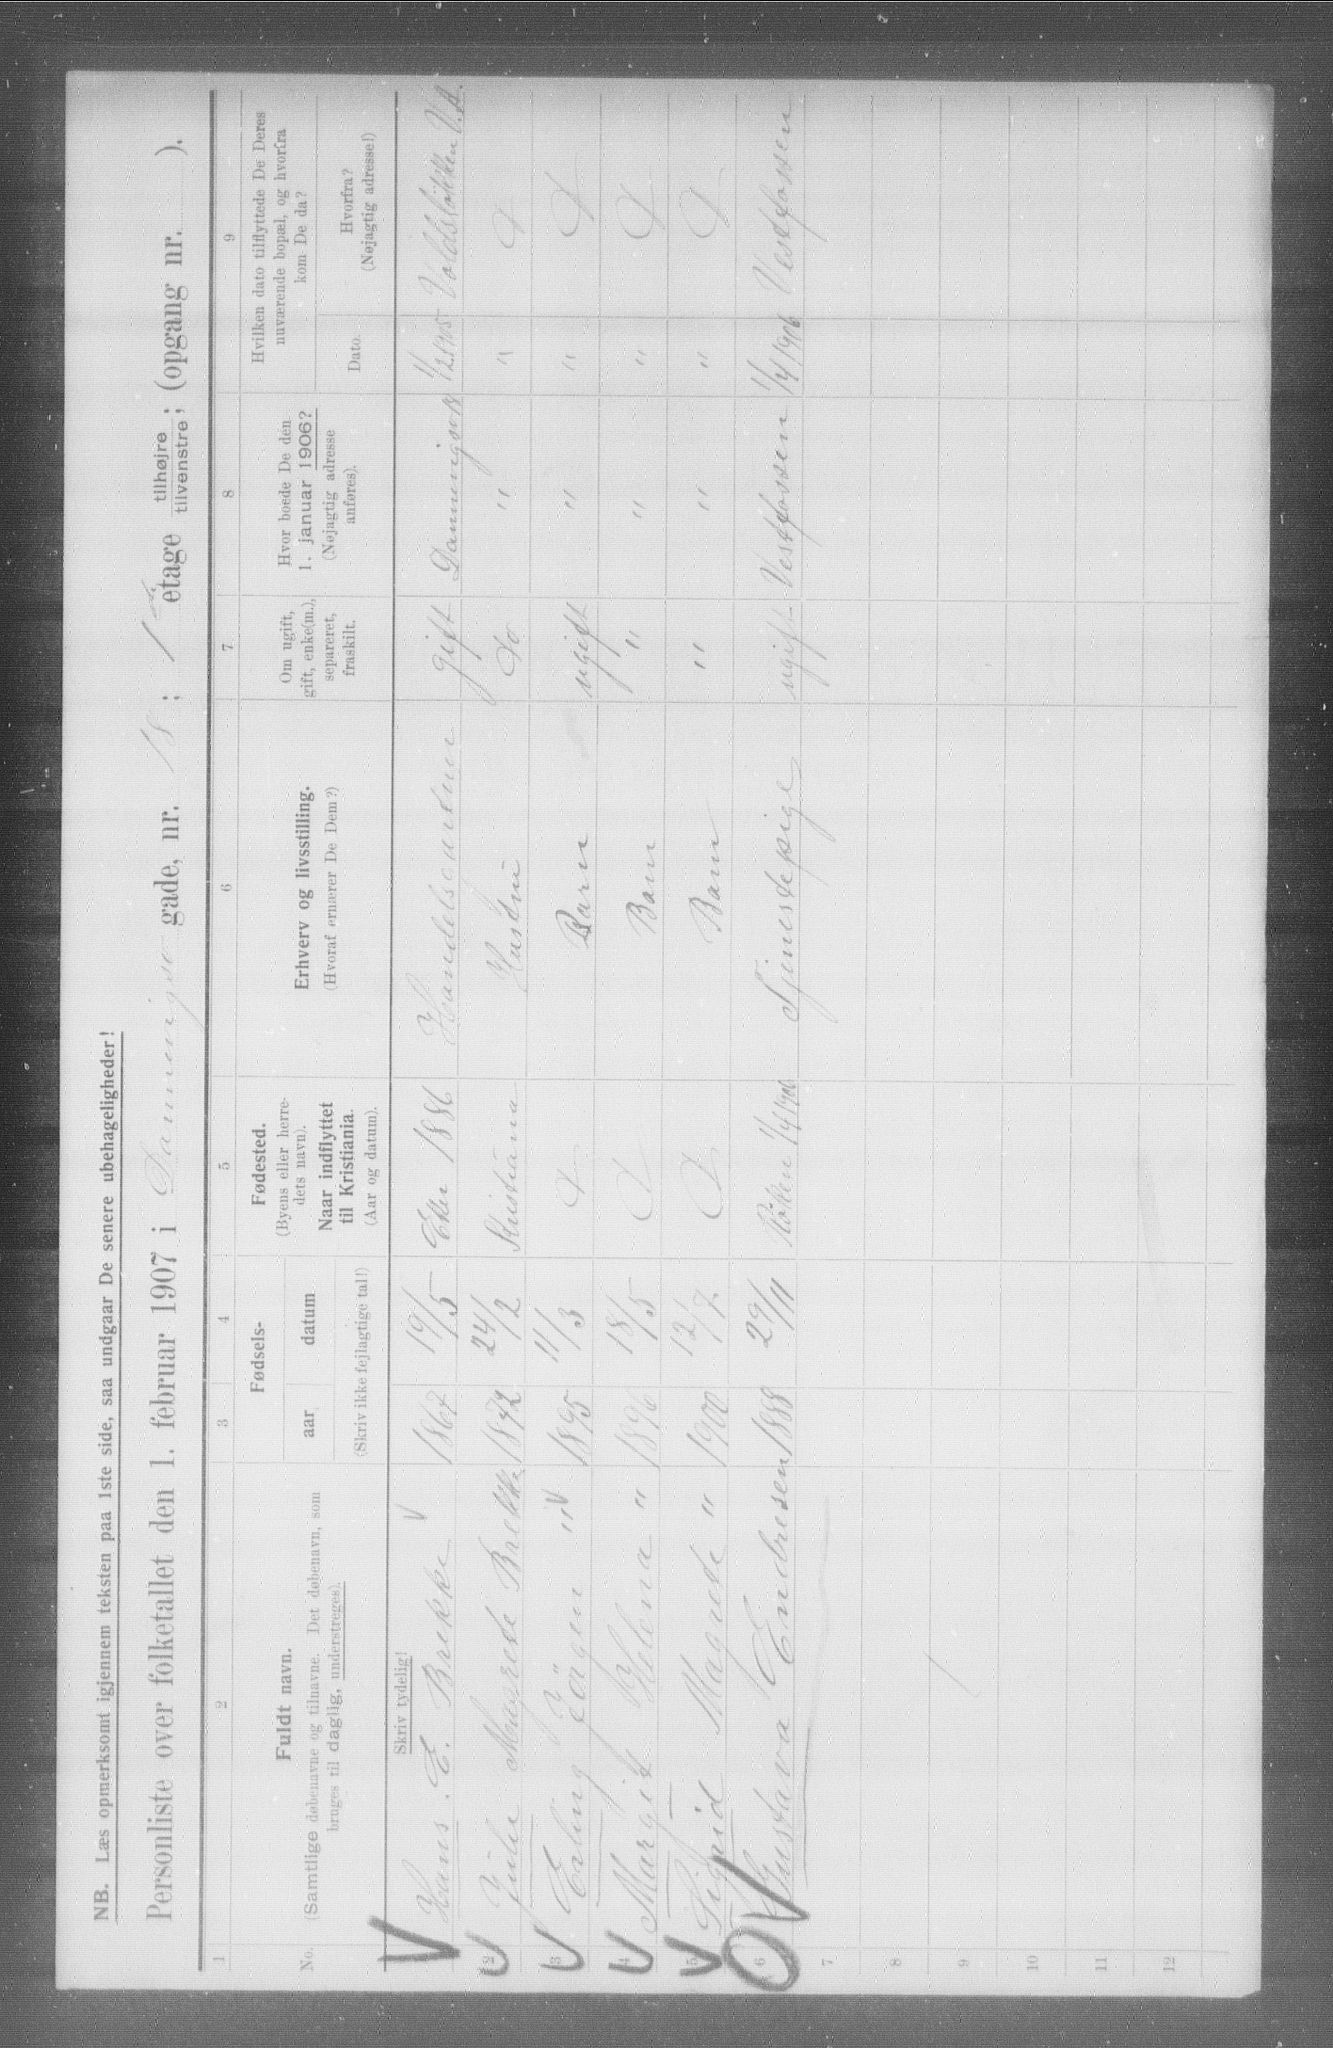 NB. Læs opmerksomt igjennem teksten paa 1ste side, saa undgaar De senere ubehageligheder!
Personliste over folketallet den 1. februar 1907 i Dannevigs gade, nr. 18; 1ste etage tilhøjre / tilvenstre; (opgang nr. ).
1 2 3 4 5 6 7 8 9
No.
Fuldt navn.
(Samtlige døbenavne og tilnavne. Det døbenavn, som
bruges til daglig, understreges).
Fødsels-
aar datum
(Skriv ikke fejlagtige tal!)
Fødested.
(Byens eller herre-
dets navn).
Naar indflyttet
til Kristiania.
(Aar og datum).
Erhverv og livsstilling.
(Hvoraf ernærer De Dem?)
Om ugift,
gift, enke(m.),
separeret,
fraskilt.
Hvor boede De den
1. januar 1906?
(Nøjagtig adresse
anføres).
Hvilken dato tilflyttede De Deres
nuværende bopæl, og hvorfra
kom De da?
Dato.
Hvorfra?
(Nøjagtig adresse!)
Skriv tydelig!
Hans. E. Brekke 1867 19/5 1886 gift Dannevigsv 18 V.A.
2 Julie Magrede Brekke 1872 24/2 Kristiania Hustru do " "
3 Erling Jörgen " 1895 11/3 Barn ugift " "
4 Margit Helena " 1896 18/5 Barn " " "
5 Sigrid Magrede " 1900 12/7 Barn " " "
6 Gustava Endresen 1888 29/11 Röken 1/4 1906 Tjenestepige ugift Vestfossen 1/4 1906 Vestfossen
7
8
9
10
11
12